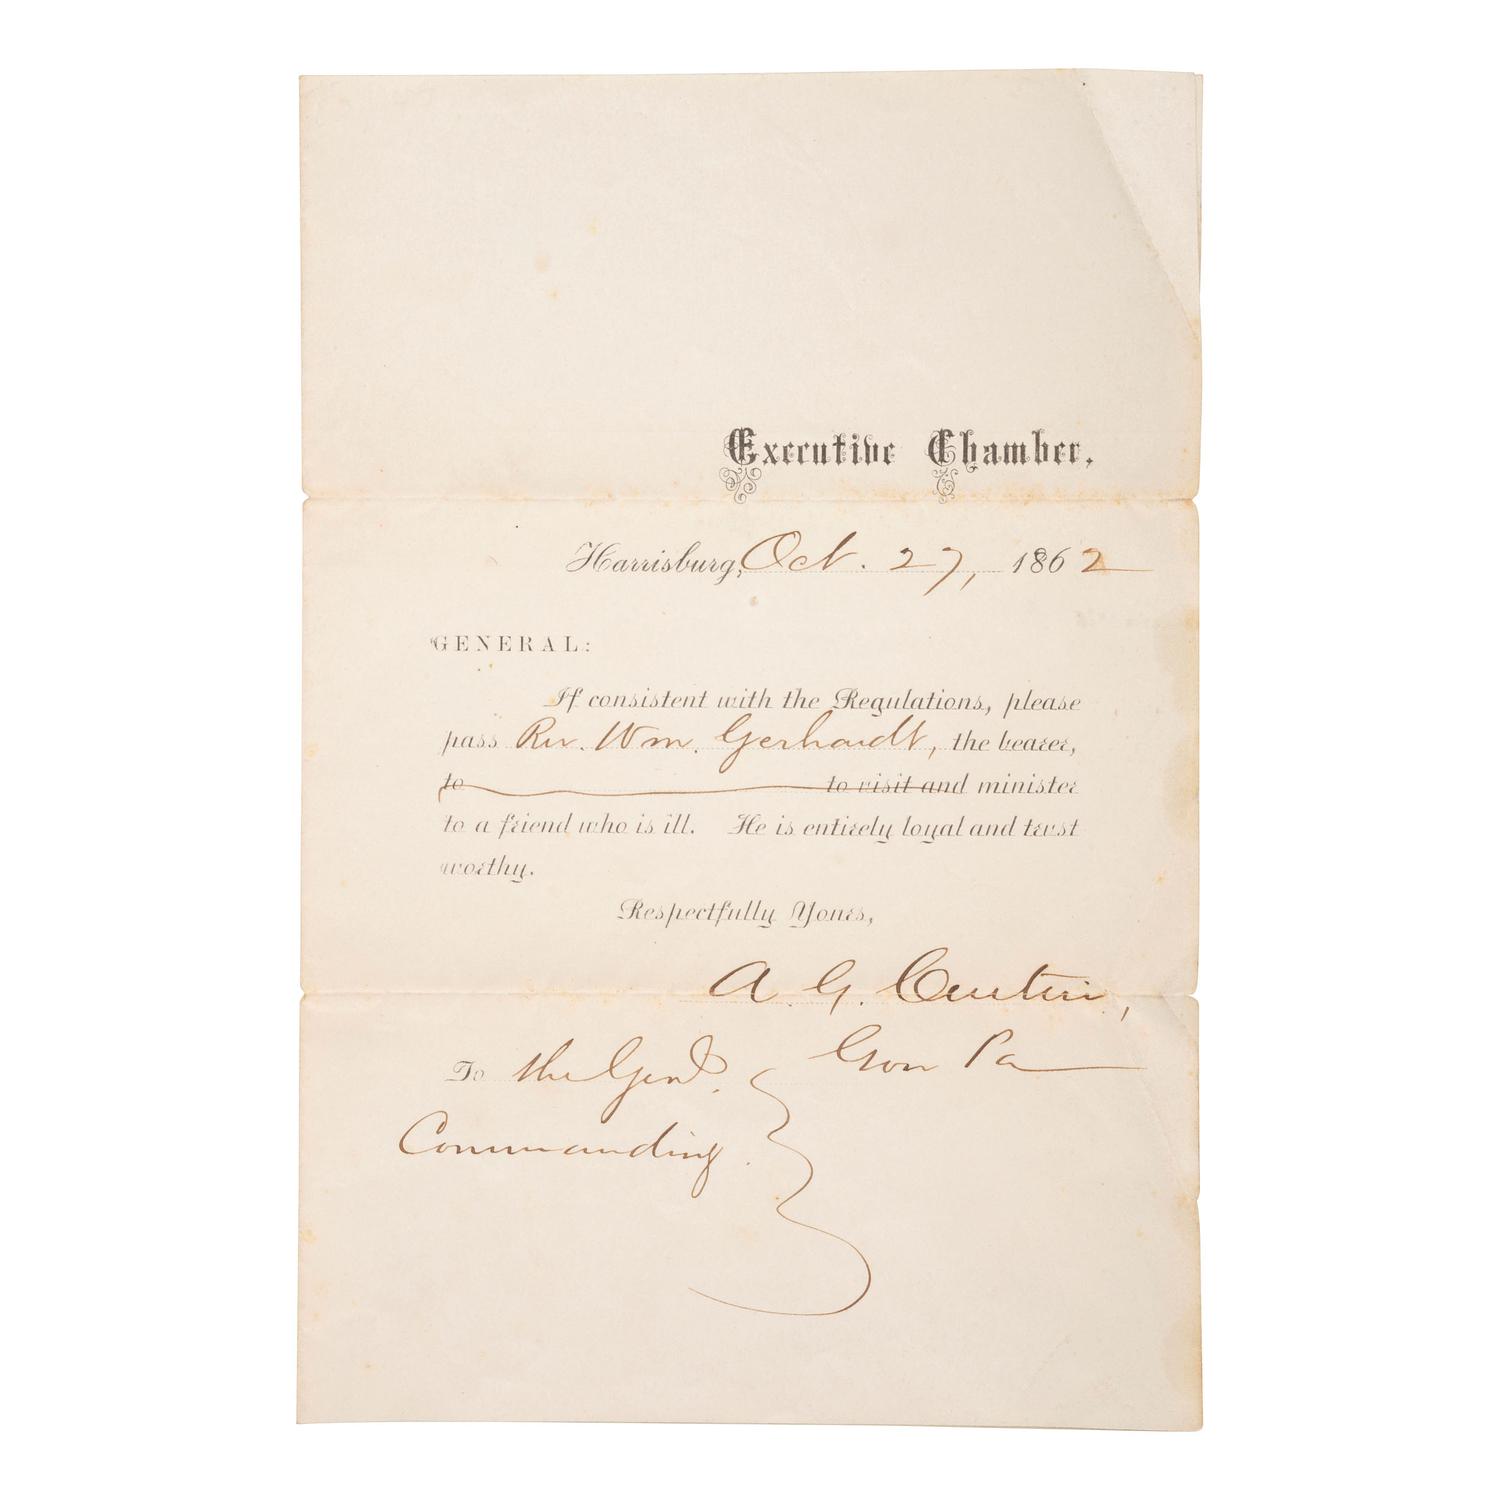 Executive Chamber.
Harrisburg, Oct. 27, 1862
GENERAL:
If consistent with the Regulations, please
pass Rev. Wm. Gerhardt, the bearer,
to to visit and minister
to a friend who is ill. He is entirely loyal and trust
worthy.
Respectfully Yours,
A. G. Curtin,
Gov Pa
To the Genl.
Commanding.